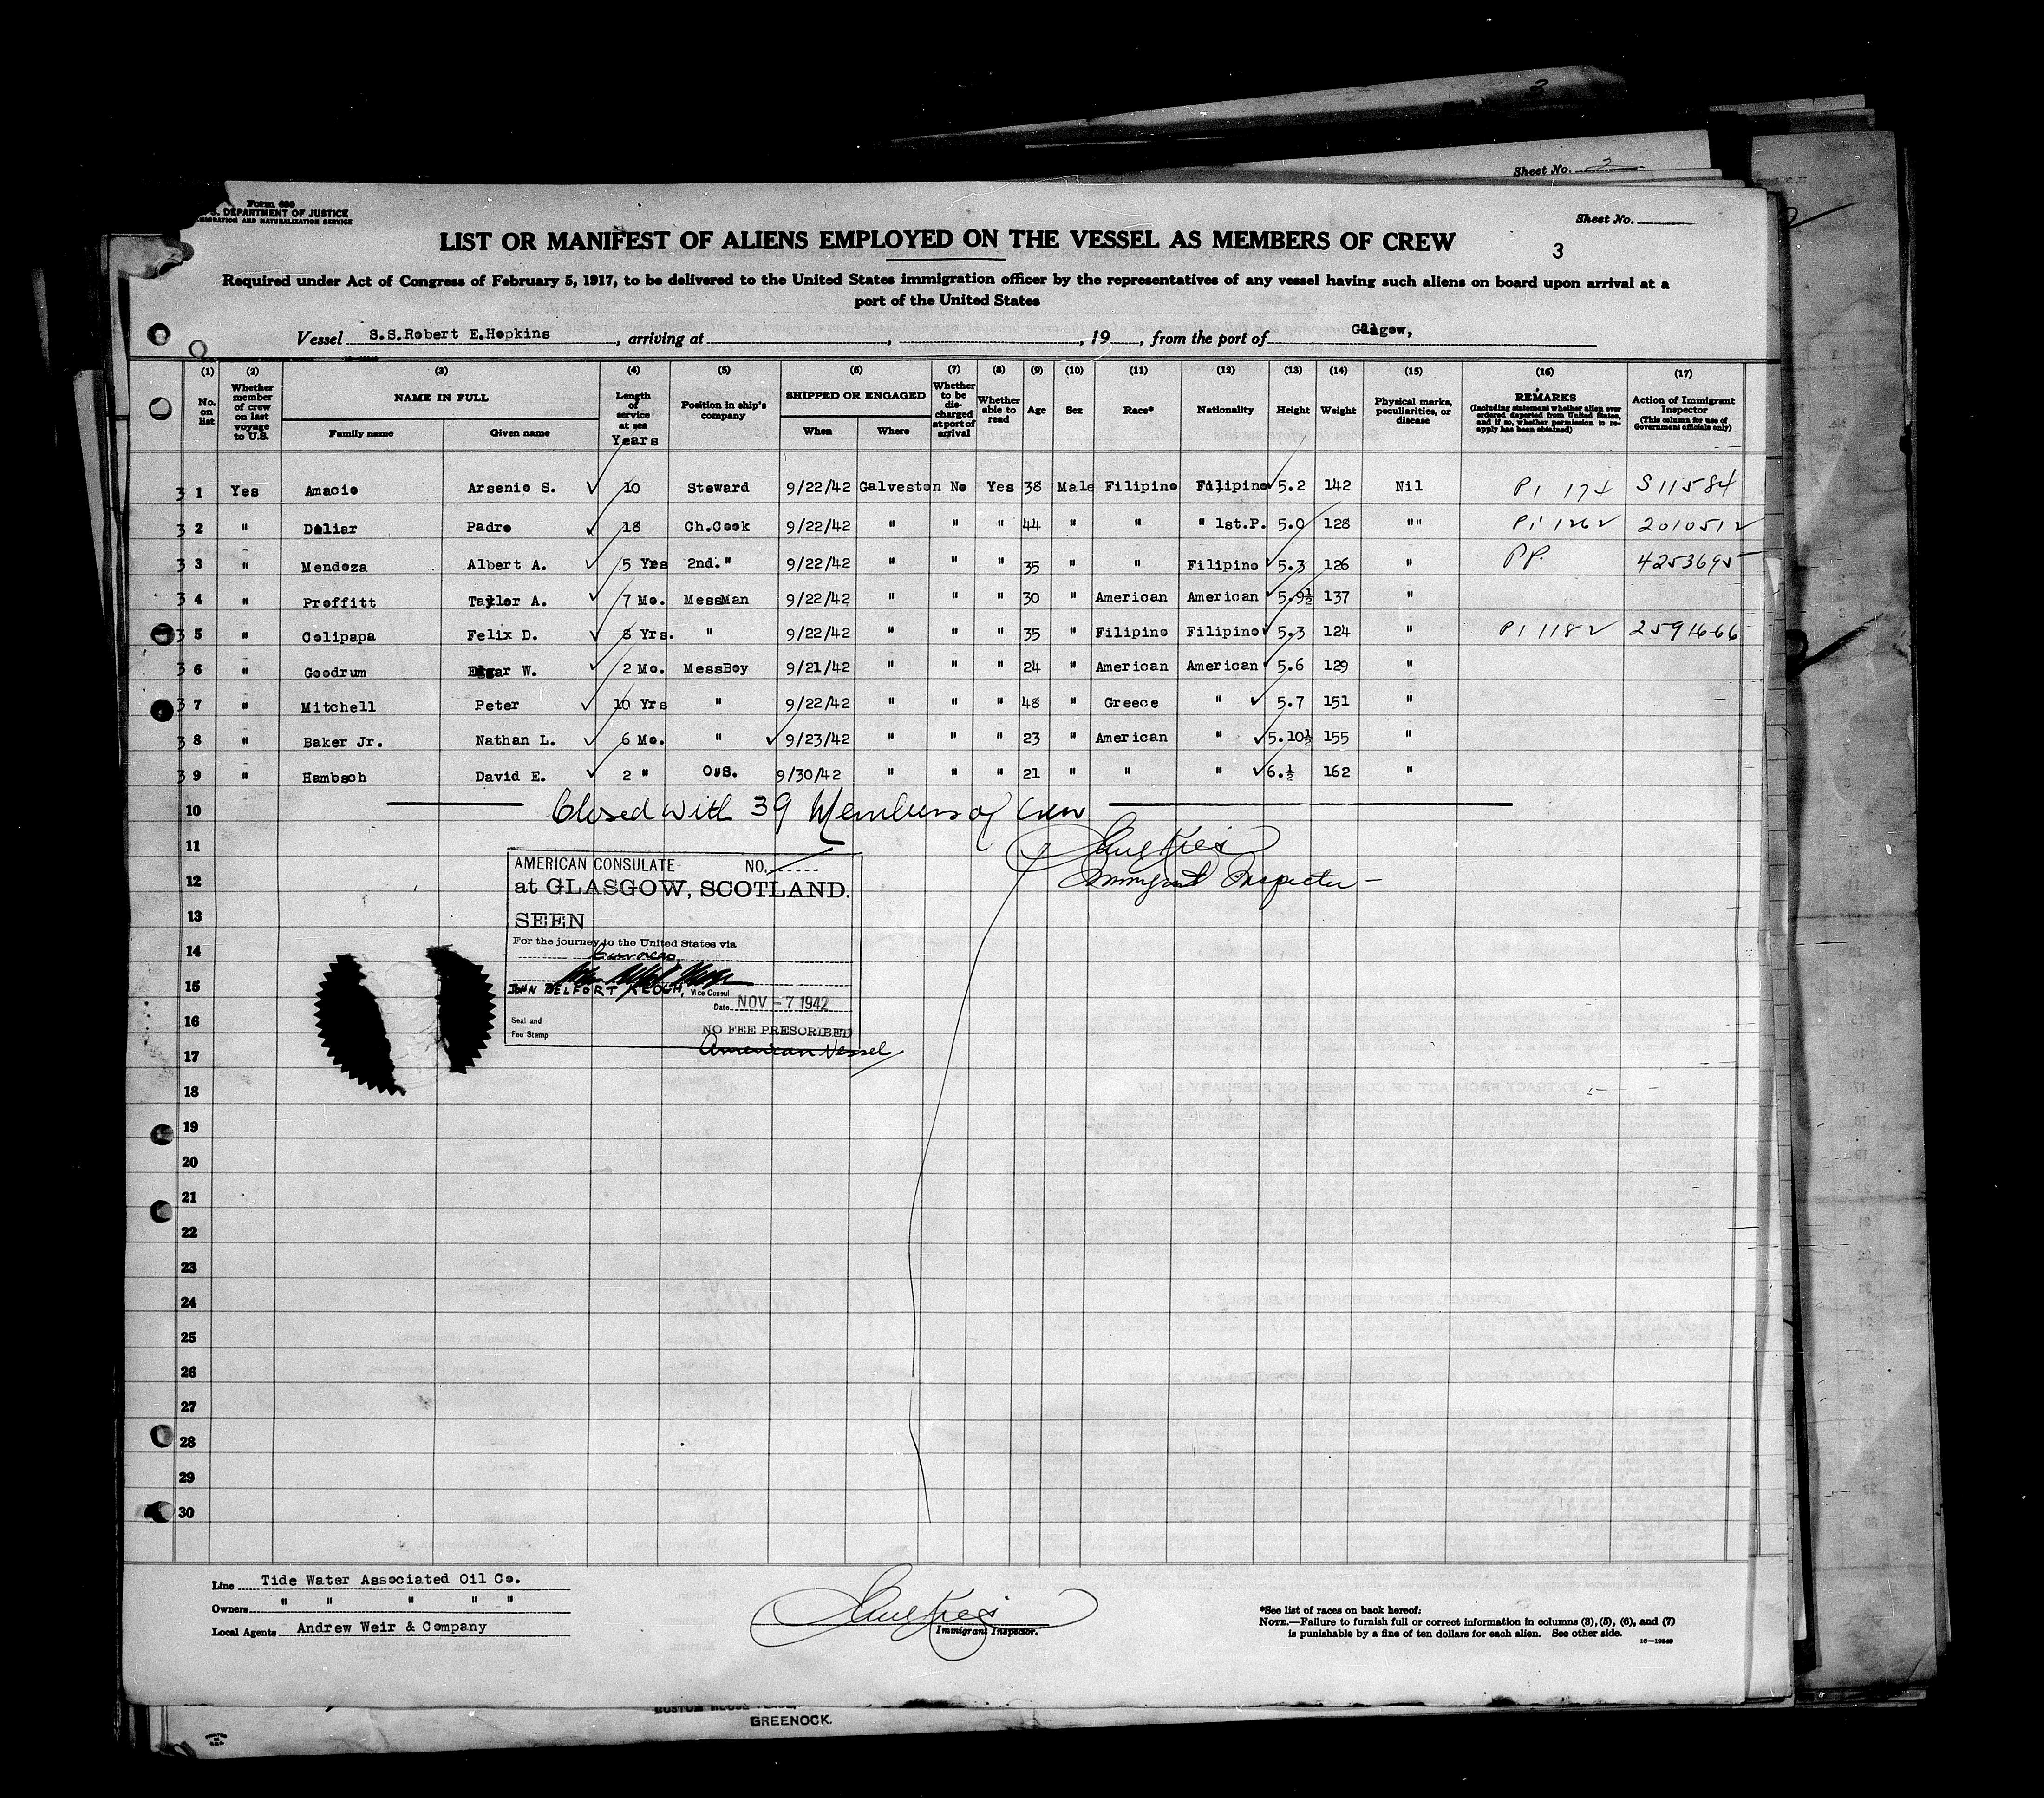 3
Sheet No. 3
Form 680
S. DEPARTMENT OF JUSTICE
IMMIGRATION AND NATURALIZATION SERVICE
Sheet No.
LIST OR MANIFEST OF ALIENS EMPLOYED ON THE VESSEL AS MEMBERS OF CREW
3
Required under Act of Congress of February 5, 1917, to be delivered to the United States immigration officer by the representatives of any vessel having such aliens on board upon arrival at a
port of the United States
Vessel S.S.Robert E.Hopkins, arriving at , , 19 , from the port of Glasgow,
(1) (2) (3) (4) (5) (6) (7) (8) (9) (10) (11) (12) (13) (14) (15) (16) (17)
No. on list
Whether member of crew on last voyage to U.S.
NAME IN FULL
Family name
Given name
Length of service at sea
Years
Position in ship's company
SHIPPED OR ENGAGED
When
Where
Whether to be discharged at port of arrival
Whether able to read
Age
Sex
Race*
Nationality
Height
Weight
Physical marks, peculiarities, or disease
REMARKS
(Including statement whether alien ever ordered deported from United States, and if so, whether permission to reapply has been obtained)
Action of Immigrant Inspector
(This column for use of Government officials only)
3 1 Yes Amacio Arsenio S. 10 Steward 9/22/42 Galveston No Yes 38 Male Filipino Filipino 5.2 142 Nil P1 174 S11584
3 2 " Deliar Padro 18 Ch.Cook 9/22/42 " " " 44 " " " 1st.P. 5.0 128 "" P1 1262 2010512
3 3 " Mendoza Albert A. 5 Yrs 2nd." 9/22/42 " " " 35 " " Filipino 5.3 126 " PP. 4253695
3 4 " Proffitt Taylor A. 7 Mo. MessMan 9/22/42 " " " 30 " American American 5.9½ 137 "
3 5 " Colipapa Felix D. 8 Yrs. " 9/22/42 " " " 35 " Filipino Filipino 5.3 124 " P1 1182 2591666
3 6 " Goodrum Edgar W. 2 Mo. MessBoy 9/21/42 " " " 24 " American American 5.6 129 "
3 7 " Mitchell Peter 10 Yrs " 9/22/42 " " " 48 " Greece " 5.7 151 "
3 8 " Baker Jr. Nathan L. 6 Mo. " 9/23/42 " " " 23 " American " 5.10½ 155 "
3 9 " Hambsch David E. 2 " O.S. 9/30/42 " " " 21 " " " 6.½ 162 "
10 Closed with 39 Members of Crew
11
12 Immigrant Inspector
AMERICAN CONSULATE NO.
at GLASGOW, SCOTLAND.
13
SEEN
For the journey to the United States via
14
15
JOHN BELFORT KEOGH, Vice Consul
Date NOV - 7 1942
16
Seal and
Fee Stamp
NO FEE PRESCRIBED
American Vessel
17
18
19
20
21
22
23
24
25
26
27
28
29
30
Line Tide Water Associated Oil Co.
Owners " " " " "
Local Agents Andrew Weir & Company
Immigrant Inspector.
*See list of races on back hereof.
NOTE.—Failure to furnish full or correct information in columns (3), (5), (6), and (7)
is punishable by a fine of ten dollars for each alien. See other side.
16—19349
GREENOCK.